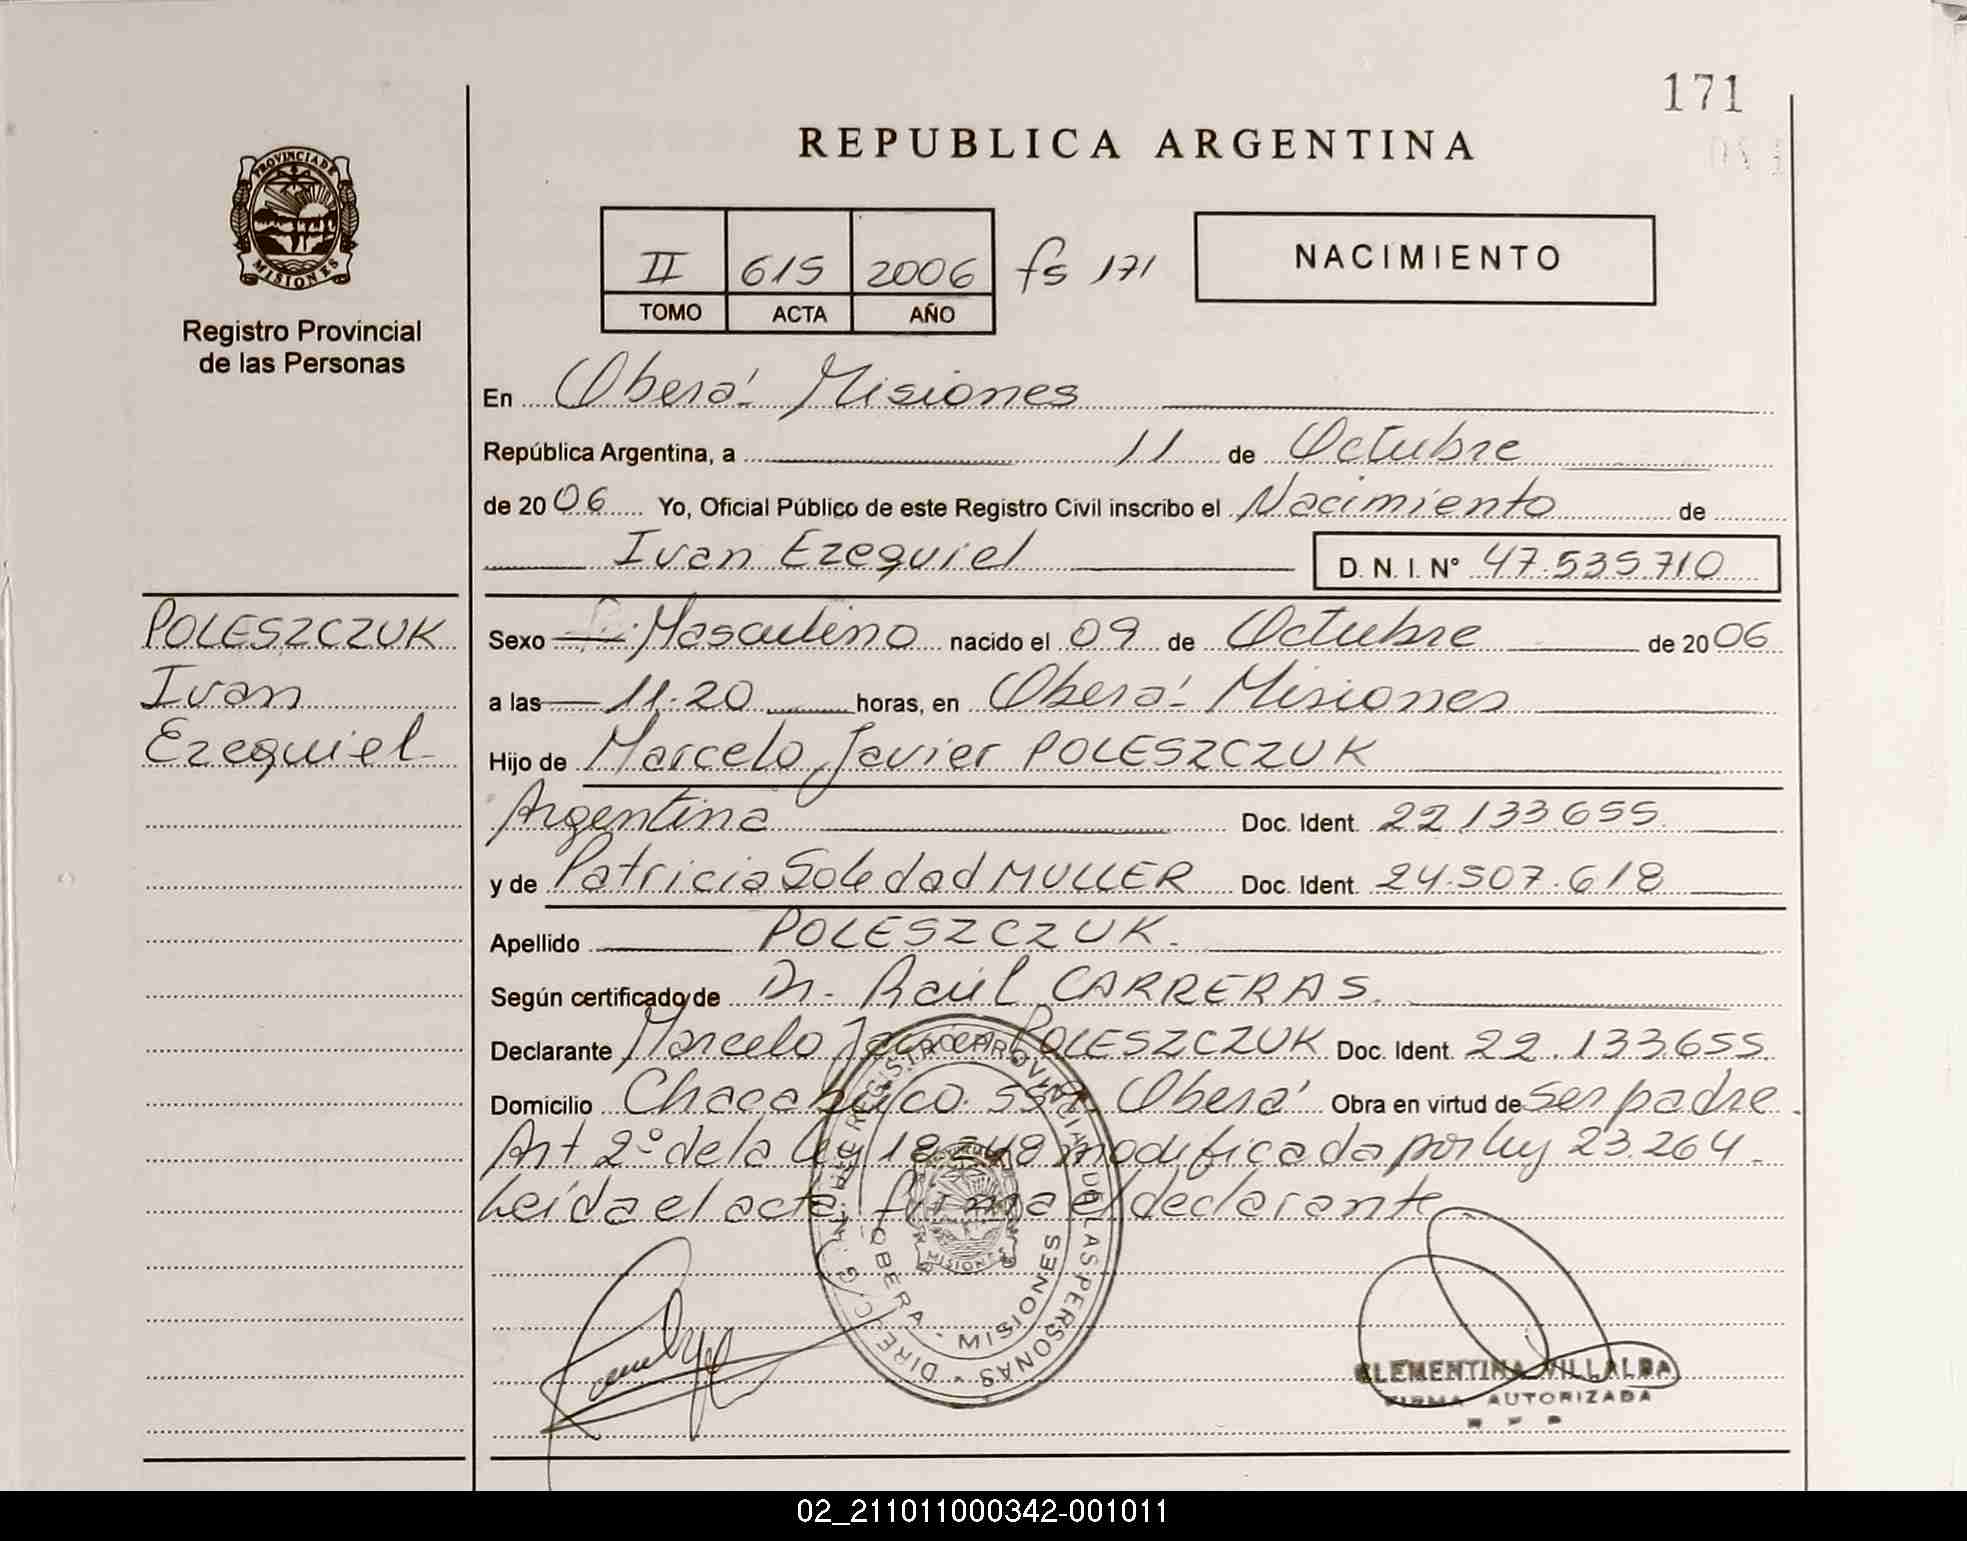 171
REPUBLICA ARGENTINA
PROVINCIA DE
MISIONES
Registro Provincial
de las Personas
II 615 2006 fs 171
TOMO ACTA AÑO
NACIMIENTO
En Oberá - Misiones
República Argentina, a 11 de Octubre
de 20 06 Yo, Oficial Público de este Registro Civil inscribo el Nacimiento de
Ivan Ezequiel D. N. I. N° 47.535.710
POLESZCZUK
Ivan
Ezequiel
Sexo Masculino nacido el 09 de Octubre de 20 06
a las 11.20 horas, en Oberá - Misiones
Hijo de Marcelo Javier POLESZCZUK
Argentina Doc. Ident. 22.133.655
y de Patricia Soledad MULLER Doc. Ident. 24.507.618
Apellido POLESZCZUK
Según certificado de Dr. Raúl CARRERAS.
Declarante Marcelo Javier POLESZCZUK Doc. Ident. 22.133.655
Domicilio Chacabuco Oberá Obra en virtud de ser padre.
Art 2° de la ley 18.248 modificada por ley 23.264
Leída el acta firma el declarante
DIREC. GRAL. DE REGISTRO PROVINCIAL DE LAS PERSONAS
OBERA - MISIONES
MISIONES
CLEMENTINA VILLALBA
FIRMA AUTORIZADA
02_211011000342-001011